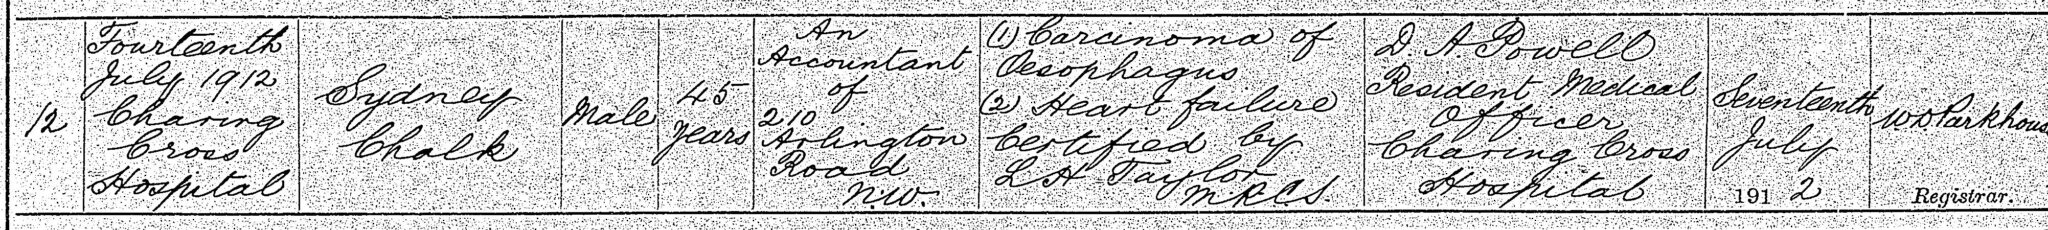 12
Fourteenth
July 1912
Charing
Cross
Hospital
Sydney
Chalk
Male
45
years
An
Accountant
of
210
Arlington
Road
N.W.
(1) Carcinoma of
Oesophagus
(2) Heart failure
Certified by
L H Taylor
M.R.C.S.
D. A. Powell
Resident Medical
Officer
Charing Cross
Hospital
Seventeenth
July
1912
W.D. Parkhous
Registrar.